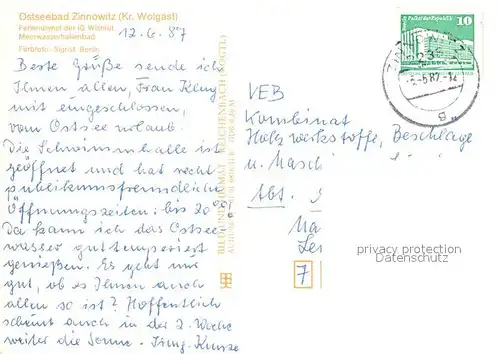 Ostseebad Zinnowitz (Kr. Wolgast)
Ferienheime der IG Wismut
Meerwasserhallenbad
Farbfoto: Sigrist, Berlin
12.6.87
Beste Grüße sende ich
Ihnen allen, Frau Klug
mit eingeschlossen,
vom Ostseeurlaub.
Die Schwimmhalle ist
geöffnet und hat recht
publikumsfreundliche
Öffnungszeiten: bis 20 00!
Da kann ich das Ostsee
wasser guttemperiert
genießen. Es geht mir
gut, ob es Ihnen auch
allen so ist? Hoffentlich
scheint auch in der 2. Woche
weiter die Sonne. Irmg. Kunze
BILD UND HEIMAT REICHENBACH (VOGTL)
10
VEB
Kombinat
Holzwerkstoffe, Beschläge
u. Masch
Abt.
7
privacy protection
Datenschutz